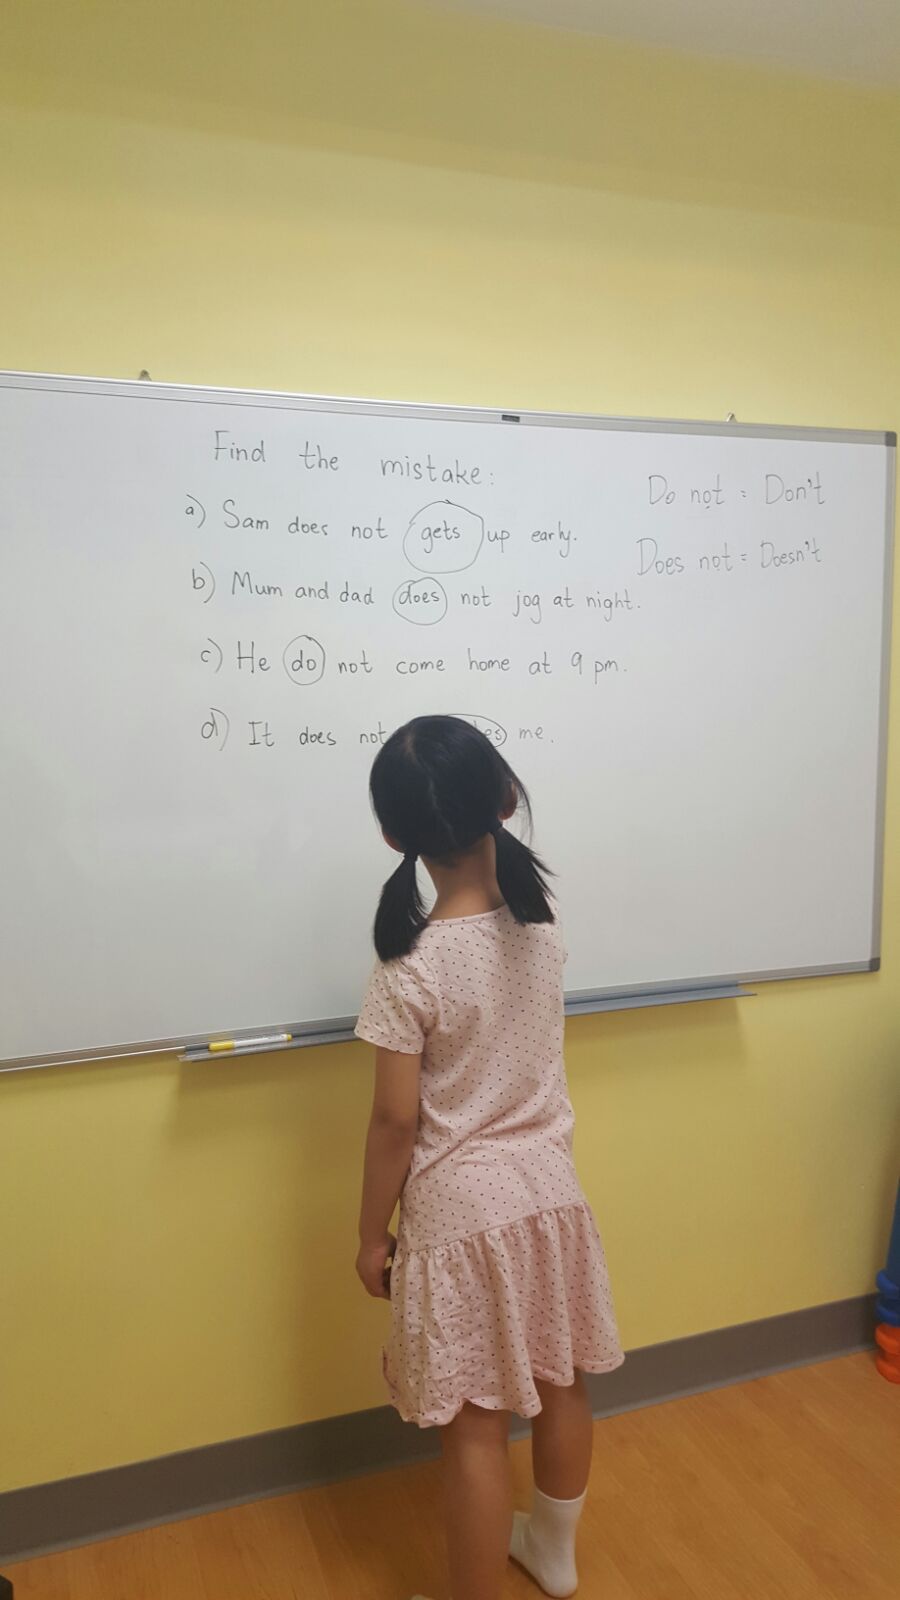 Find the mistake:
a) Sam does not gets up early.
b) Mum and dad does not jog at night.
c) He do not come home at 9 pm.
d) It does not me.
Do not = Don't
Does not = Doesn't